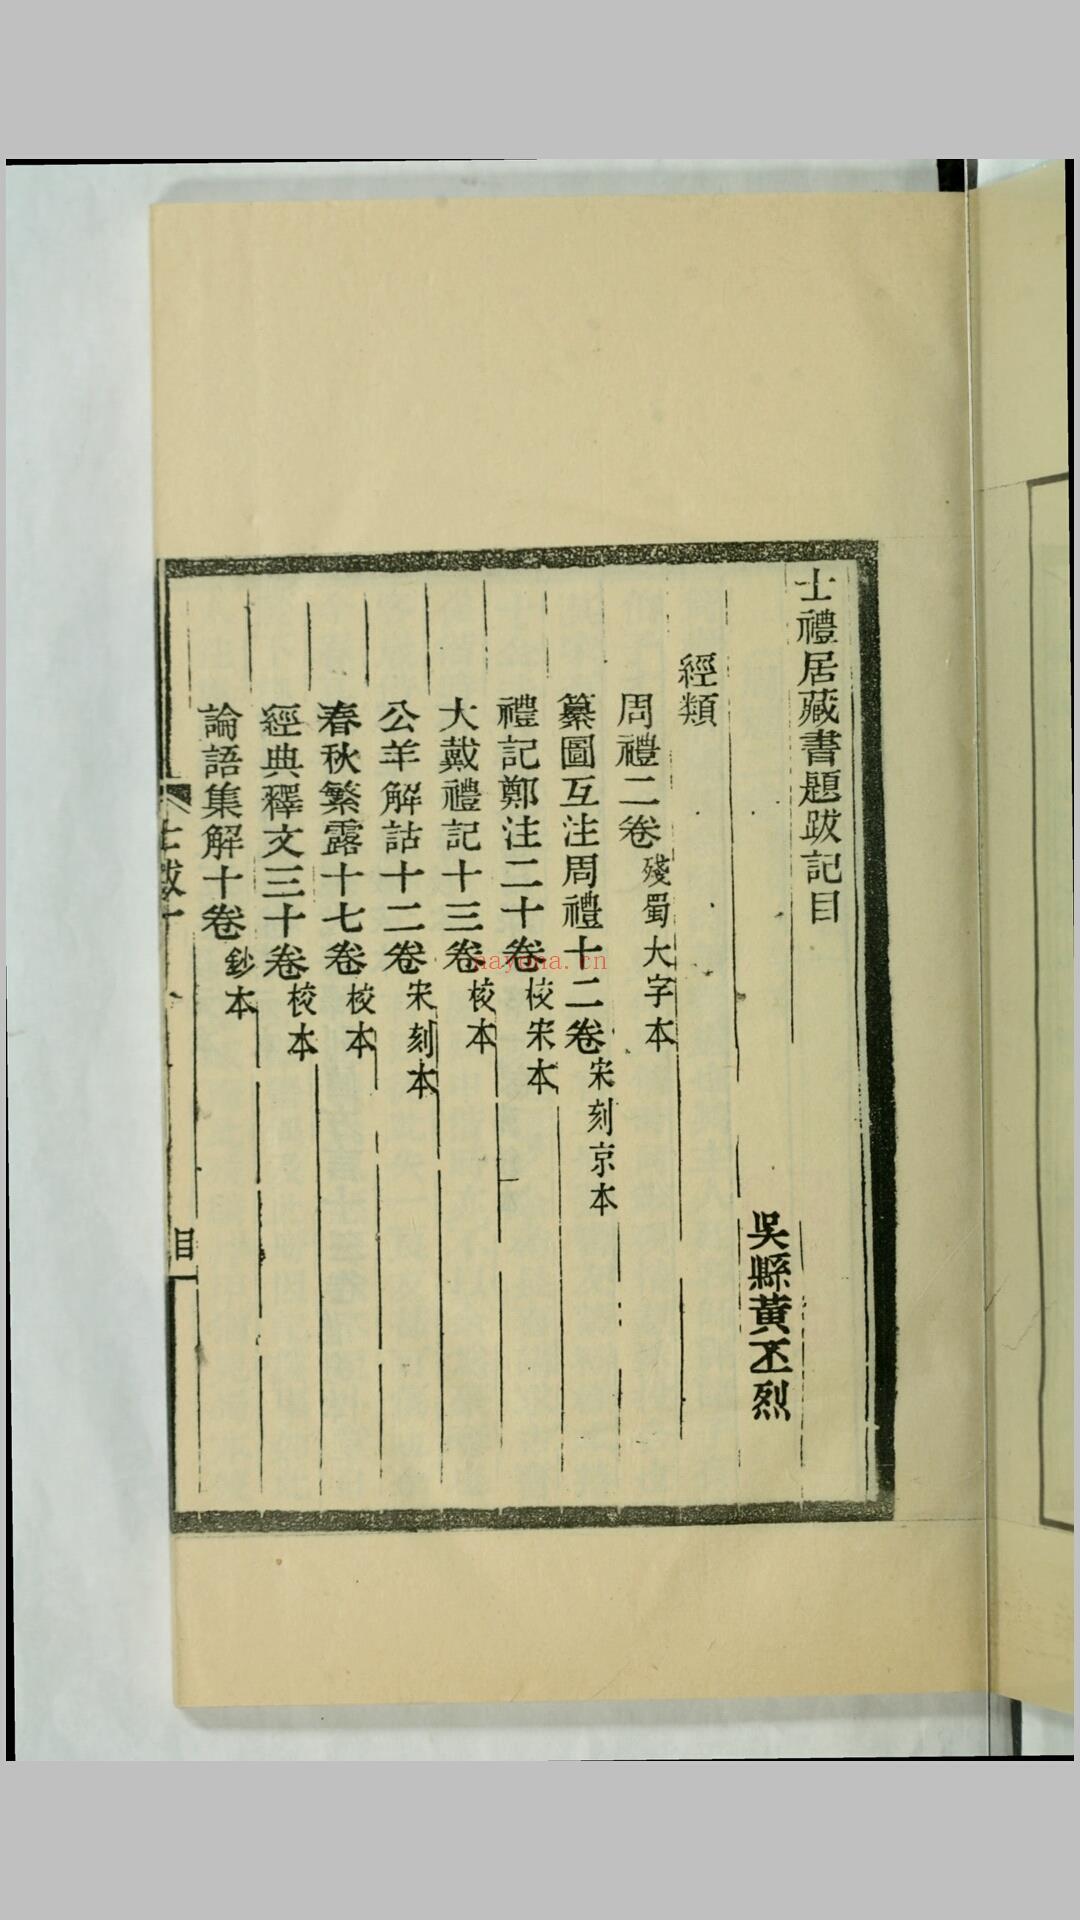 士禮居藏書題跋記目
吳縣黃丕烈
經類
周禮二卷 殘蜀大字本
纂圖互注周禮十二卷 宋刻京本
禮記鄭注二十卷 校宋本
大戴禮記十三卷 校本
公羊解詁十二卷 宋刻本
春秋繁露十七卷 校本
經典釋文三十卷 校本
論語集解十卷 鈔本
目
nayona.cn